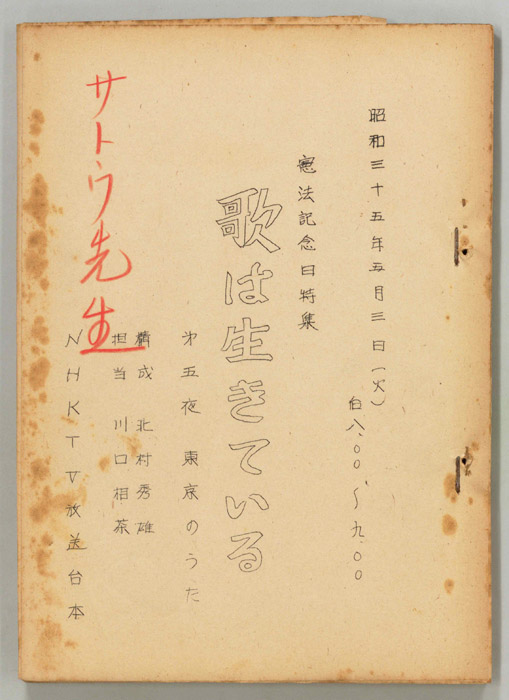 昭和三十五年五月三日(火)
后八.〇〇~九.〇〇
憲法記念日特集
歌は生きている
第五夜 東京のうた
構成 北村秀雄
担当 川口 
NHKTV放送台本
サトウ先生